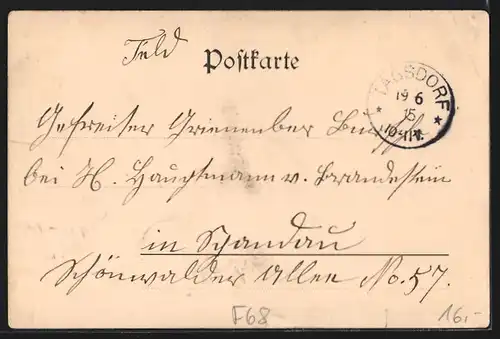 Feld
Postkarte
TAGSDORF
19 6
15
10-11V.
Gefreiter Grienenber
bei H. Hauptmann v. Brandestein
in Spandau
Schönwalder Allee No. 57.
F68
16,-